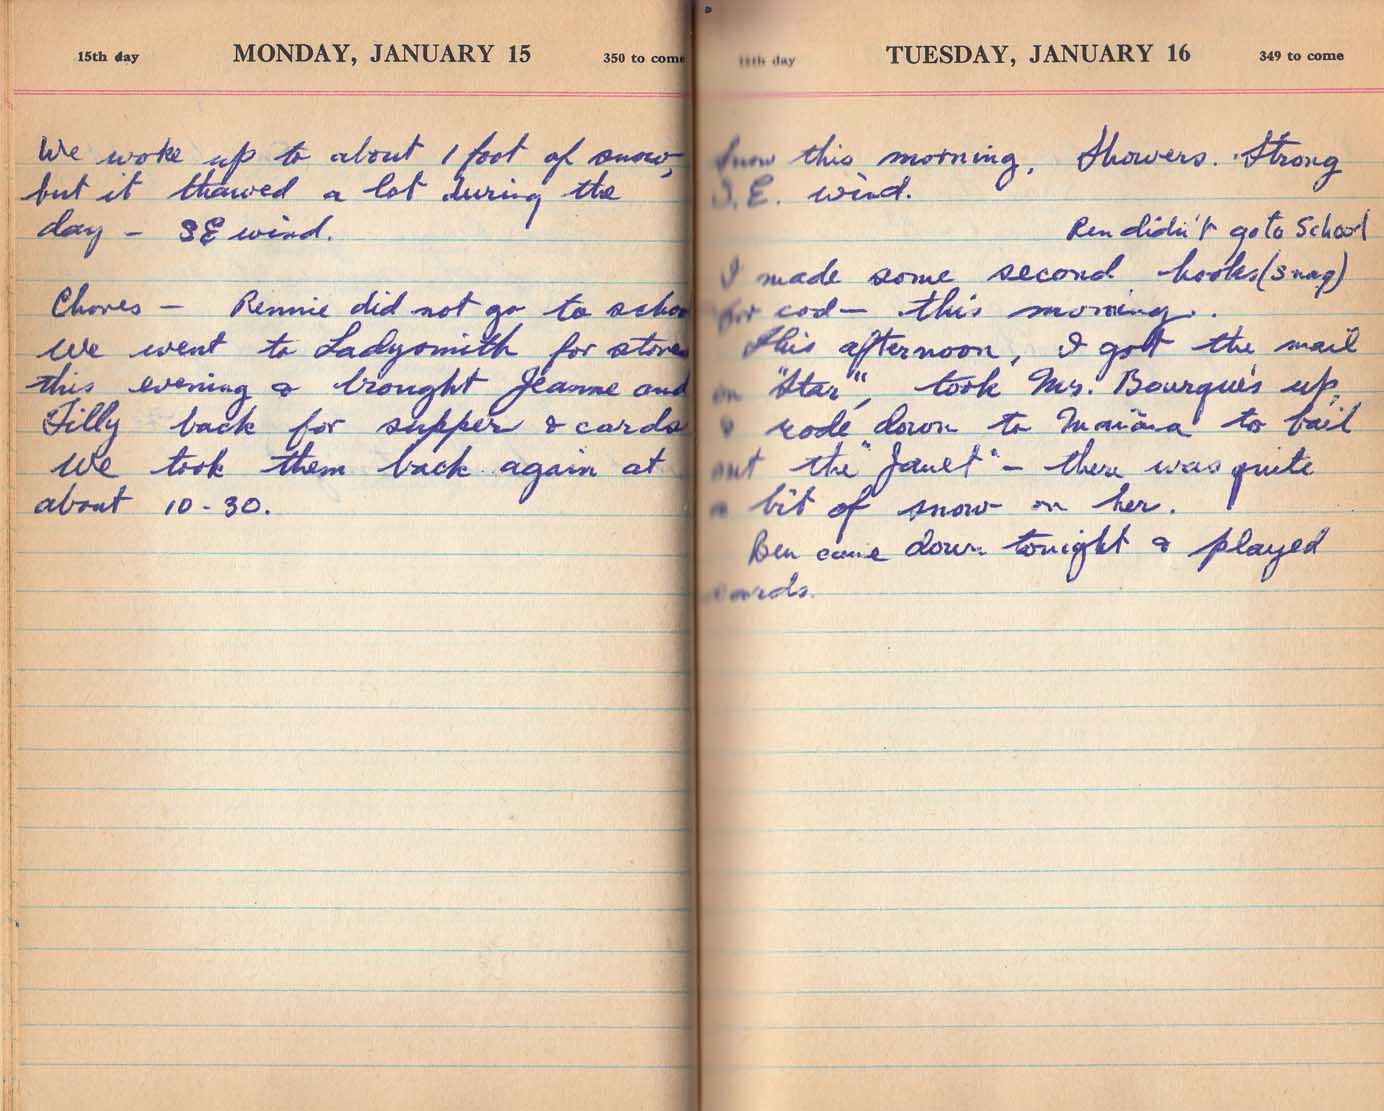 15th day MONDAY, JANUARY 15 350 to come
We woke up to about 1 foot of snow,
but it thawed a lot during the
day – SE wind.
Chores – Rennie did not go to school
We went to Ladysmith for stores
this evening & brought Jeanne and
Tilly back for supper & cards
We took them back again at
about 10-30.
16th day TUESDAY, JANUARY 16 349 to come
Snow this morning, Showers. Strong
S.E. wind.
Ren didn't go to School
I made some second hooks (snag)
for cod – this morning.
This afternoon, I got the mail
on "Star", took Mrs. Bourque's up,
& rode down to to bail
out the "Janet" – there was quite
a bit of snow on her.
Ben came down tonight & played
cards.